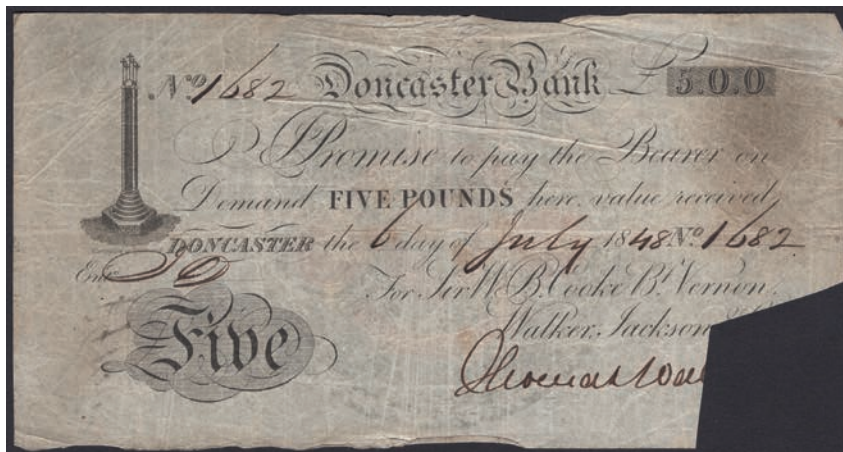 No 1682 Doncaster Bank £ 5.0.0
I Promise to pay the Bearer on
Demand FIVE POUNDS here, value received,
DONCASTER the 6 day of July 1848 No 1682
For Sir W. B. Cooke Bt. Vernon,
Walker, Jackson
Five
Thomas